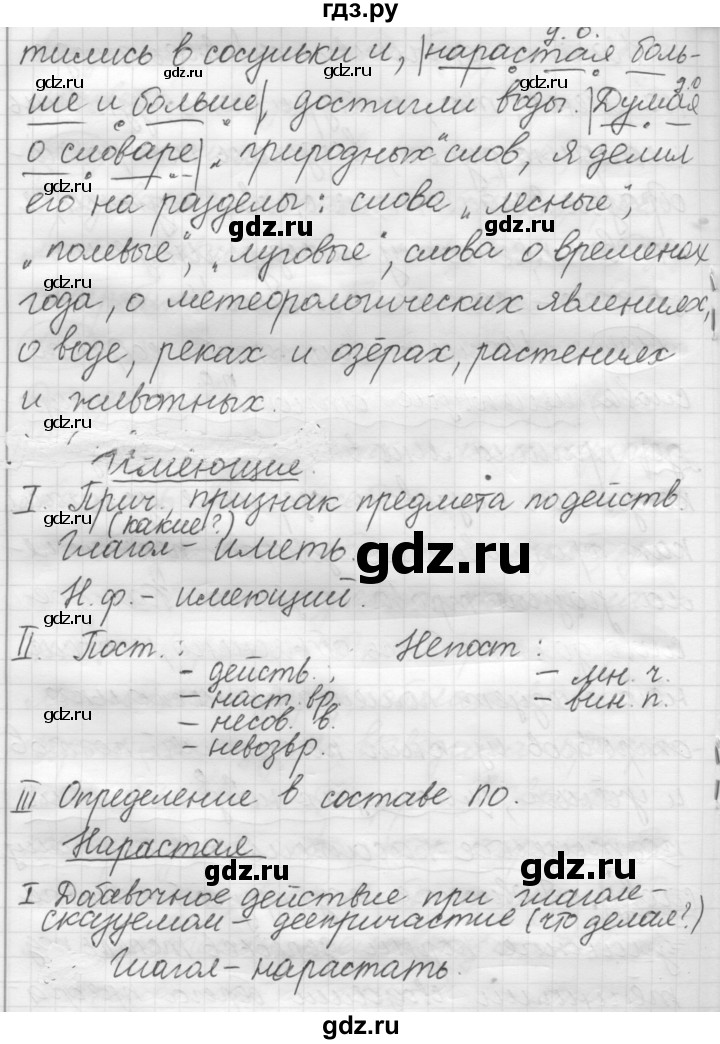 гдз.ру
д. о.
тились в сосульки и, |нарастая боль-
gdz.ru
д.о
ше и больше|, достигли воды. |Думая
gdz.ru
о словаре| „природных“ слов, я делил
gdz.ru
его на разделы: слова „лесные“,
gdz.ru gdz.ru
„полевые“, „луговые“, слова о временах
gdz.ru
года, о метеорологических явлениях,
о воде, реках и озёрах, растениях
и животных.
gdz.ru
Имеющие.
I. Прич., признак предмета по действ.
gdz.ru
(какие?)
Глагол – иметь.
gdz.ru
Н.ф. – имеющий.
gdz.ru
II. Пост.: Непост:
– действ.; – мн. ч.
– наст. вр. – вин. п.
gdz.ru
– несов. в.
– невозвр.
III Определение в составе ПО.
gdz.ru
Нарастая
gdz.ru
I Добавочное действие при глаголе-
сказуемом – деепричастие (что делая?)
Глагол – нарастать.
gdz.ru
gdz.ru